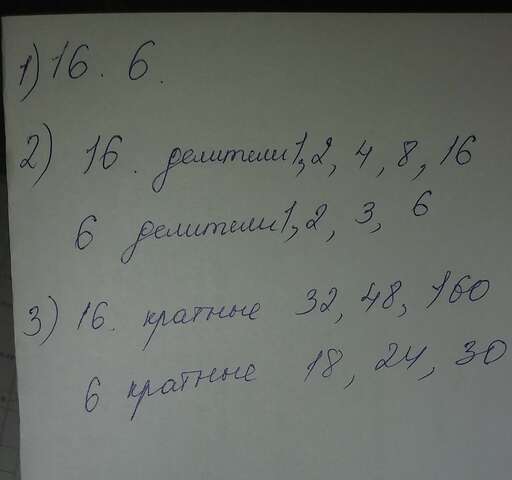 1) 16. 6.
2) 16. делители 1, 2, 4, 8, 16
6 делители 1, 2, 3, 6
3) 16. кратные 32, 48, 160
6 кратные 18, 24, 30